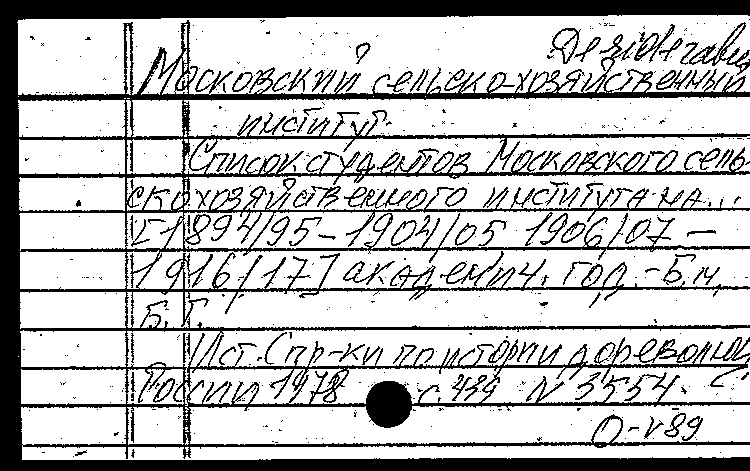 Московский сельско-хозяйственный
институт.
Список студентов Московского сель-
скохозяйственного института на...
[1894/95-1904/05 1906/07-
1916/17] академич. год.-Б.м,
Б.г.
Ист. Спр-ки по истории дореволюц
России 1978 с.439 N 3554.